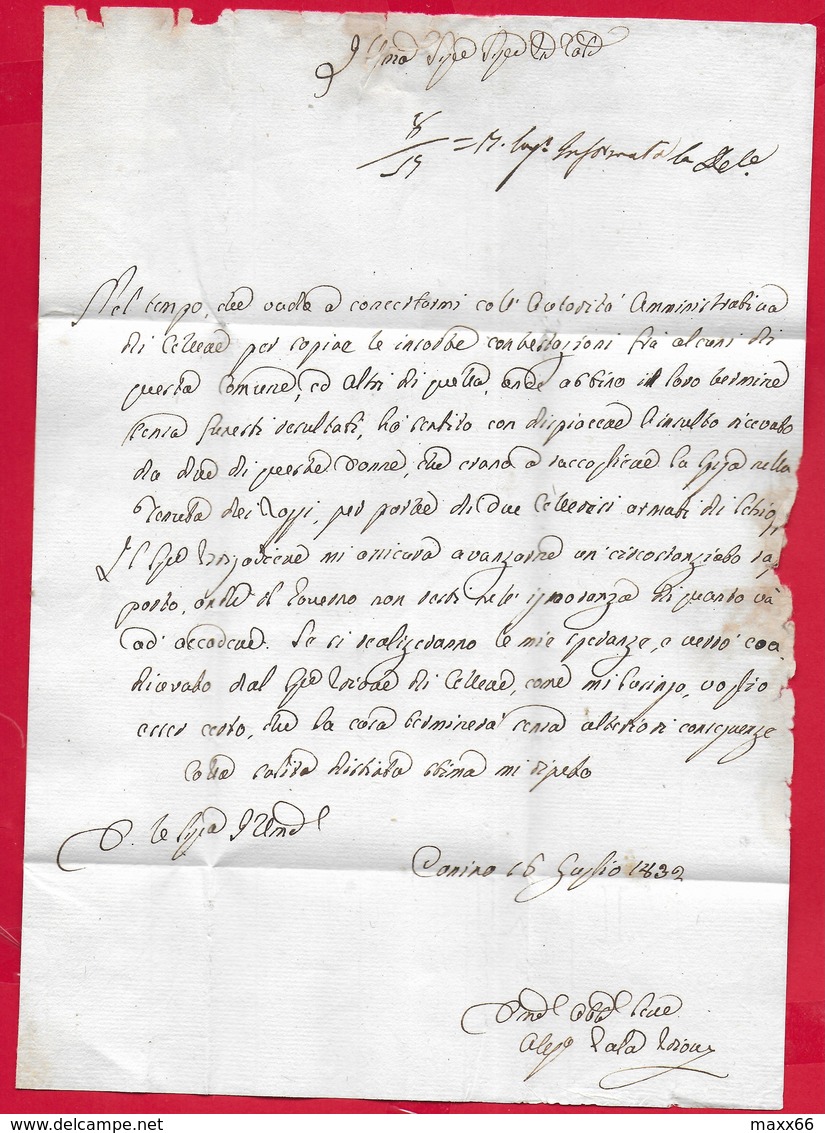 Illmo Sige Sige
= 17. lug. Informata la Dele.
Nel tempo, che vado a concertarmi coll' Autorità Amministrativa
di Cellere per sopire le insorte contestazioni frà alcuni di
questa Comune, ed altri di quella, onde abbino il loro termine
senza funesti resultati, hò sentito con dispiacere l'insulto ricevuto
da due di queste Donne, che erano a raccogliere la Spiga nella
Tenuta dei, per parte di due Celleresi armati di Schiop
Il Sige mi assicura avanzarne un' circostanziato rap
porto, onde il Governo non resti nell' ignoranza di quanto và
ad' accadere. Se si realizeranno le mie speranze, e verrò coa
diuvato dal Sige Priore di Cellere, come mi lusingo, voglio
esser certo, che la cosa terminerà senza alteriori conseguenze
Colla solita distinta stima mi ripeto
D. V. S. Illma
Canino 16 Luglio 1832
Dmo Obbmo Serve